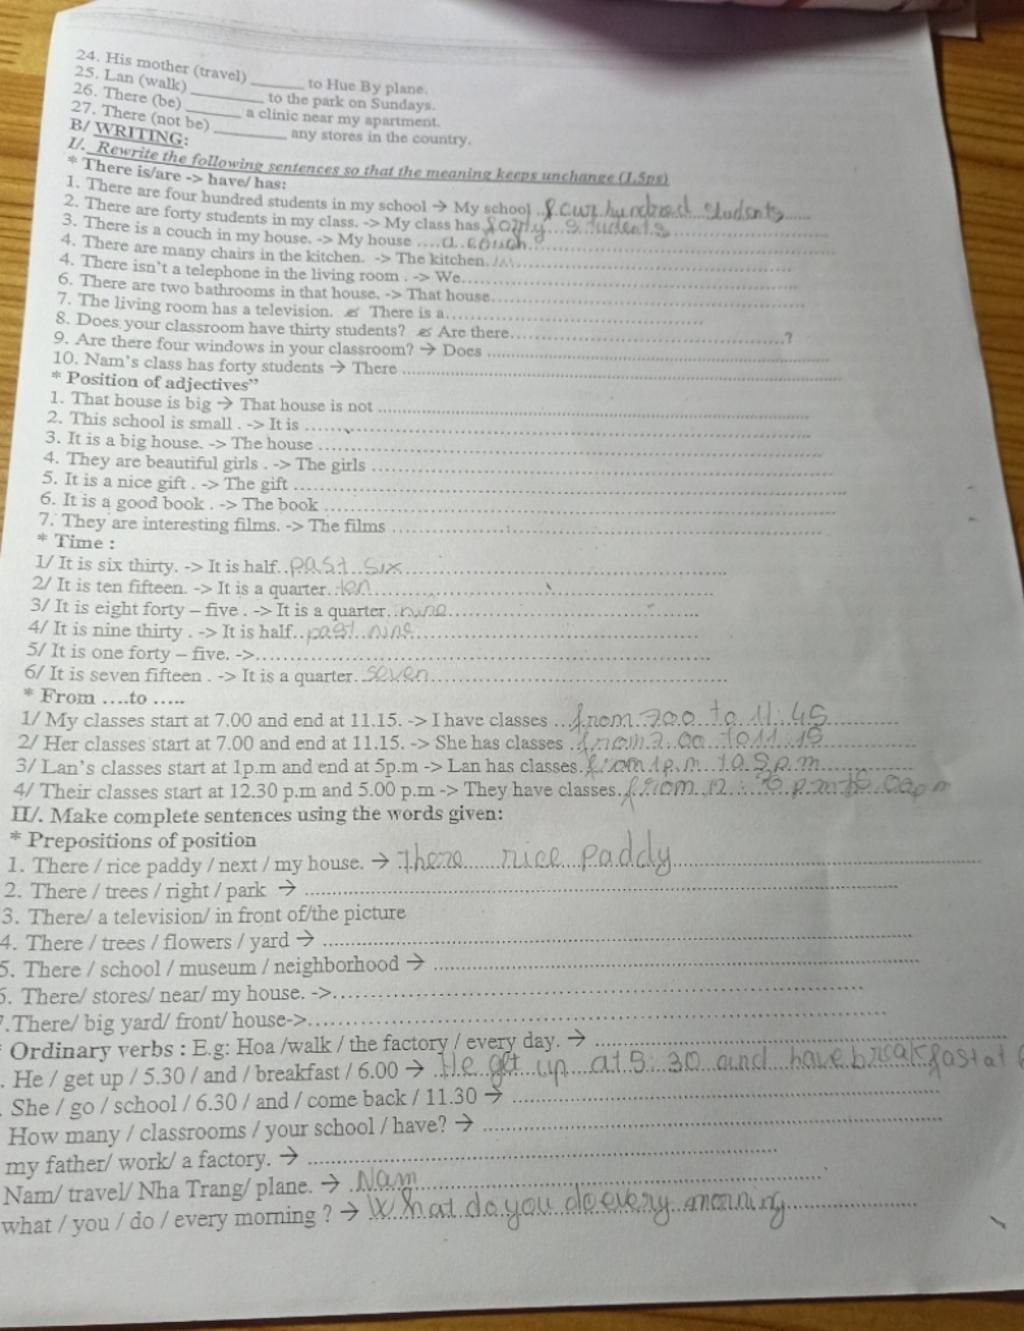 24. His mother (travel) ________ to Hue By plane.
25. Lan (walk) ________ to the park on Sundays.
26. There (be) ________ a clinic near my apartment.
27. There (not be) ________ any stores in the country.
B/ WRITING:
I/. Rewrite the following sentences so that the meaning keeps unchange (1.5ps)
* There is/are -> have/ has:
1. There are four hundred students in my school → My school .. four hundred students
2. There are forty students in my class. -> My class has forty students
3. There is a couch in my house. -> My house .... a couch
4. There are many chairs in the kitchen. -> The kitchen.
4. There isn't a telephone in the living room . -> We
6. There are two bathrooms in that house. -> That house
7. The living room has a television. There is a
8. Does your classroom have thirty students? Are there ?
9. Are there four windows in your classroom? → Does
10. Nam's class has forty students → There
* Position of adjectives"
1. That house is big → That house is not
2. This school is small . -> It is
3. It is a big house. -> The house
4. They are beautiful girls . -> The girls
5. It is a nice gift . -> The gift
6. It is a good book . -> The book
7. They are interesting films. -> The films
* Time :
1/ It is six thirty. -> It is half.. past six
2/ It is ten fifteen. -> It is a quarter. ten
3/ It is eight forty – five . -> It is a quarter. nine
4/ It is nine thirty . -> It is half.. past nine
5/ It is one forty – five. ->
6/ It is seven fifteen . -> It is a quarter. seven
* From ....to .....
1/ My classes start at 7.00 and end at 11.15. -> I have classes ... from 700 to 11:45
2/ Her classes start at 7.00 and end at 11.15. -> She has classes . from 7.00 to 11:15
3/ Lan's classes start at 1p.m and end at 5p.m -> Lan has classes. from 1p.m to 5p.m
4/ Their classes start at 12.30 p.m and 5.00 p.m -> They have classes. from 12 : p.m
II/. Make complete sentences using the words given:
* Prepositions of position
1. There / rice paddy / next / my house. → There rice paddy
2. There / trees / right / park →
3. There/ a television/ in front of/the picture
4. There / trees / flowers / yard →
5. There / school / museum / neighborhood →
. There/ stores/ near/ my house. ->
.There/ big yard/ front/ house->
Ordinary verbs : E.g: Hoa /walk / the factory / every day. →
. He / get up / 5.30 / and / breakfast / 6.00 → He get up at 5:30 and have breakfast at
. She / go / school / 6.30 / and / come back / 11.30 →
How many / classrooms / your school / have? →
my father/ work/ a factory. →
Nam/ travel/ Nha Trang/ plane. → Nam
what / you / do / every morning ? → What do you do every morning